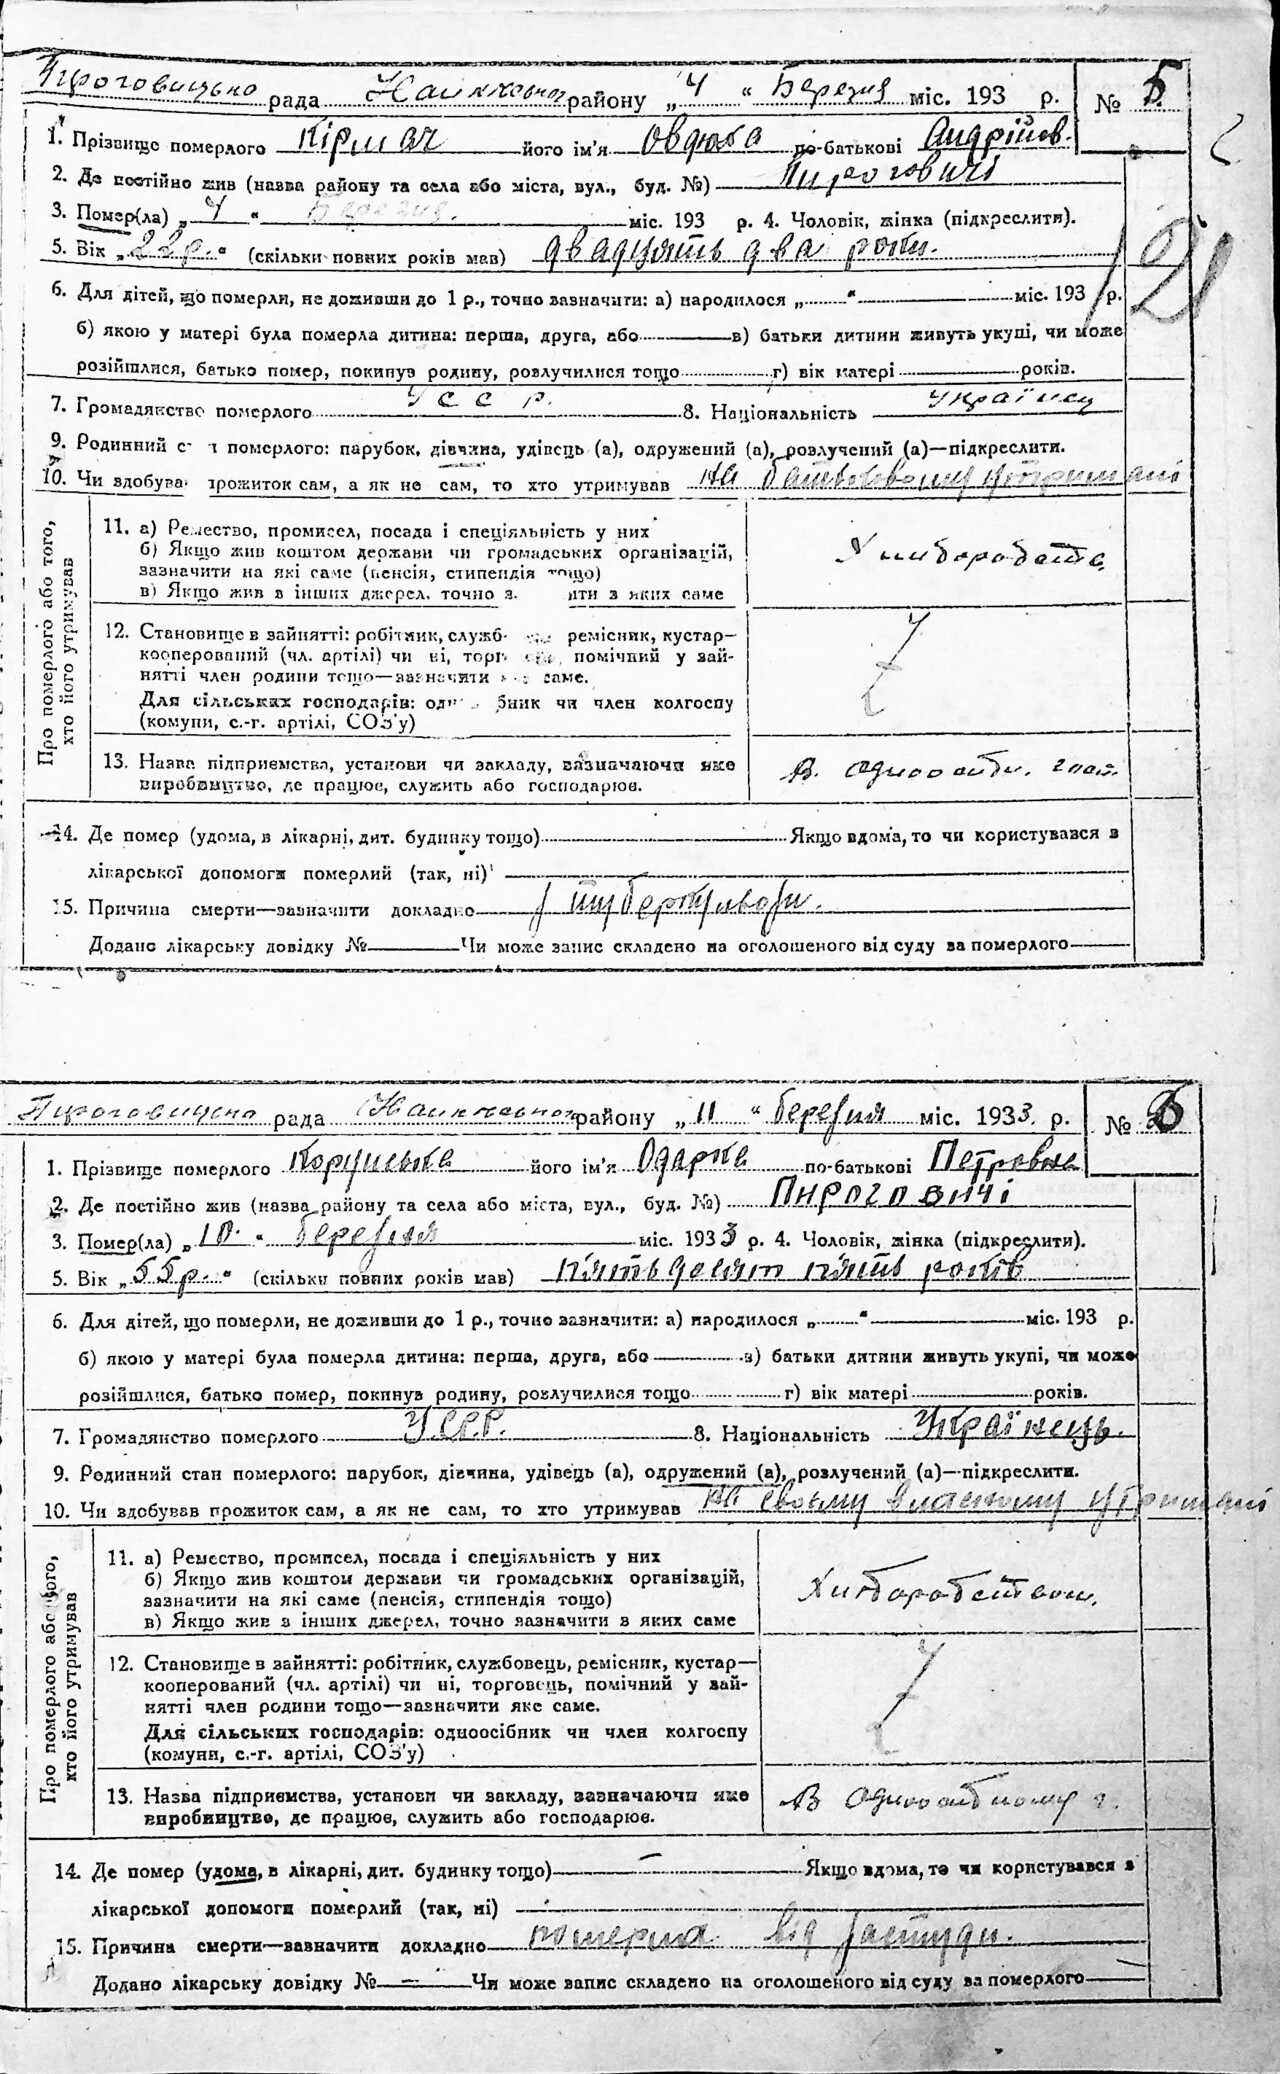 рада району „ 4 " Березня міс. 193 р. № 5
1. Прізвище померлого Кірмач його ім'я Овдюха по-батькові Андрійов.
2. Де постійно жив (назва району та села або міста, вул., буд. №) Пироговичі
3. Помер(ла) „ 4 " Березня. міс. 193 р. 4. Чоловік, жінка (підкреслити).
5. Вік „22р." (скільки повних років мав) двадцять два роки.
6. Для дітей, що померли, не доживши до 1 р., точно зазначити: а) народилося „ " міс. 193 р.
б) якою у матері була померла дитина: перша, друга, або в) батьки дитини живуть укупі, чи може
розійшлися, батько помер, покинув родину, розлучилися тощо г) вік матері років.
7. Громадянство померлого УССР. 8. Національність Українец
9. Родинний с т померлого: парубок, дівчина, удівець (а), одружений (а), розлучений (а)—підкреслити.
10. Чи здобува прожиток сам, а як не сам, то хто утримував на батьковому утримані
Про померлого або того,
хто його утримував
11. а) Ремество, промисел, посада і спеціяльність у них
б) Якщо жив коштом держави чи громадських організацій,
зазначити на які саме (пенсія, стипендія тощо)
в) Якщо жив з інших джерел, точно з ити з яких саме
12. Становище в зайнятті: робітник, служб ремісник, кустар—
кооперований (чл. артілі) чи ні, торг помічний у зай-
нятті член родини тощо—зазначити саме.
Для сільських господарів: од бник чи член колгоспу
(комуни, с.-г. артілі, СОЗ'у)
13. Назва підприємства, установи чи закладу, зазначаючи яке
виробництво, де працює, служить або господарює.
В. одноосібн. госп.
14. Де помер (удома, в лікарні, дит. будинку тощо) Якщо вдома, то чи користувався з
лікарської допомоги померлий (так, ні)
15. Причина смерти—зазначити докладно з туберкульози.
Додано лікарську довідку № Чи може запис складено на оголошеного від суду за померлого
рада району „ 11 " березня міс. 1933. р. № 6
1. Прізвище померлого його ім'я Одарка по-батькові Петровна
2. Де постійно жив (назва району та села або міста, вул., буд. №) Пироговичі
3. Помер(ла) „10. " березня міс. 1933 р. 4. Чоловік, жінка (підкреслити).
5. Вік „55р." (скільки повних років мав) пятьдесят пять років
6. Для дітей, що померли, не доживши до 1 р., точно зазначити: а) народилося „ " міс. 193 р.
б) якою у матері була померла дитина: перша, друга, або в) батьки дитини живуть укупі, чи може
розійшлися, батько помер, покинув родину, розлучилися тощо г) вік матері років.
7. Громадянство померлого У.С.Р.Р. 8. Національність Українець.
9. Родинний стан померлого: парубок, дівчина, удівець (а), одружений (а), розлучений (а)—підкреслити.
10. Чи здобував прожиток сам, а як не сам, то хто утримував на своєму власному утримані
Про померлого або того,
хто його утримував
11. а) Ремество, промисел, посада і спеціяльність у них
б) Якщо жив коштом держави чи громадських організацій,
зазначити на які саме (пенсія, стипендія тощо)
в) Якщо жив з інших джерел, точно зазначити з яких саме
Хліборобством.
12. Становище в зайнятті: робітник, службовець, ремісник, кустар—
кооперований (чл. артілі) чи ні, торговець, помічний у зай-
нятті член родини тощо—зазначити яке саме.
Для сільських господарів: одноосібник чи член колгоспу
(комуни, с.-г. артілі, СОЗ'у)
13. Назва підприємства, установи чи закладу, зазначаючи яке
виробництво, де працює, служить або господарює.
В одноосібному г.
14. Де помер (удома, в лікарні, дит. будинку тощо) — Якщо вдома, то чи користувався з
лікарської допомоги померлий (так, ні)
15. Причина смерти—зазначити докладно померла від застуди.
Додано лікарську довідку № — Чи може запис складено на оголошеного від суду за померлого